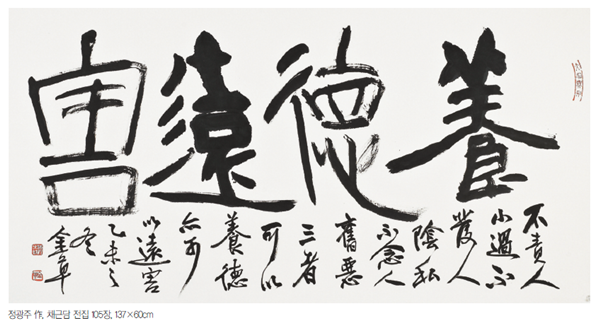 養德遠害
不責人
小過不
發人
陰私
不念人
舊惡
三者
可以
養德
亦可
以遠害
乙未之
冬
정광주 作, 채근담 전집 105장, 137×60cm